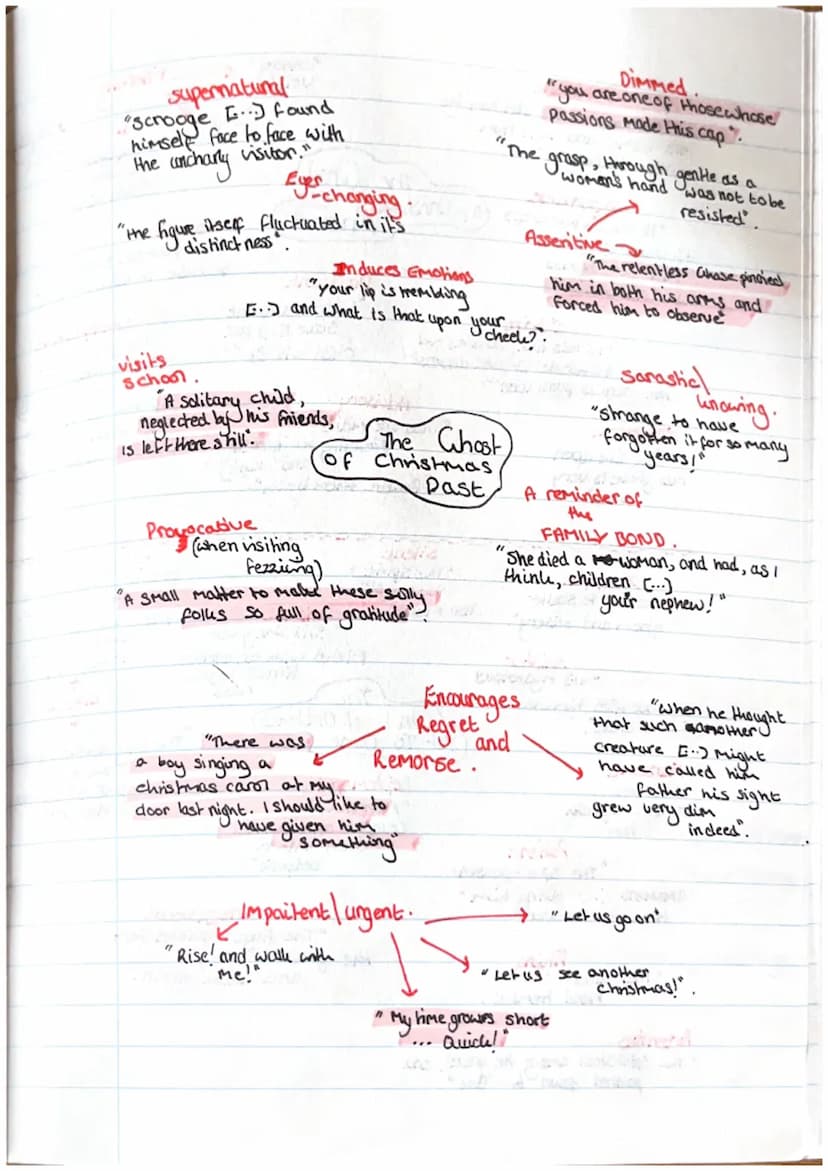 Supernatural
"Scrooge [...] found
himself face to face with
the uncharly visitor."
Dimmed.
"you are one of those whose
passions made this cap".
"The grasp, through gentle as a
woman's hand was not to be
resisted".
Eyer
-changing.
"the figure itself fluctuated in its
distinctness".
Asseritive
"The relentless Ghose pinched
him in both his arms and
forced him to observe"
Induces Emotions
"your lip is trembling
[...] and what is that upon your
cheek?".
visits
school.
"A solitary child,
neglected by his friends,
is left there still".
Sarastic\
knowing.
"strange to have
forgotten it for so many
years!"
The Ghost
Of Christmas
Past
A reminder of
the
FAMILY BOND.
"She died a woman, and had, as I
think, children [...]
your nephew!"
Provocative
(when visiting
fezziwig)
"A small matter to make these silly
folks so full of gratitude".
Encourages
Regret
and
Remorse.
"There was
a boy singing a
christmas carol at my
door last night. I should like to
have given him
something"
"when he thought
that such another
creature [...] might
have called him
father his sight
grew very dim
indeed".
Impaitent\urgent.
"Rise! and walk with
me!"
"Let us go on"
"Let us see another
christmas!".
"My time grows short
... Quick!"